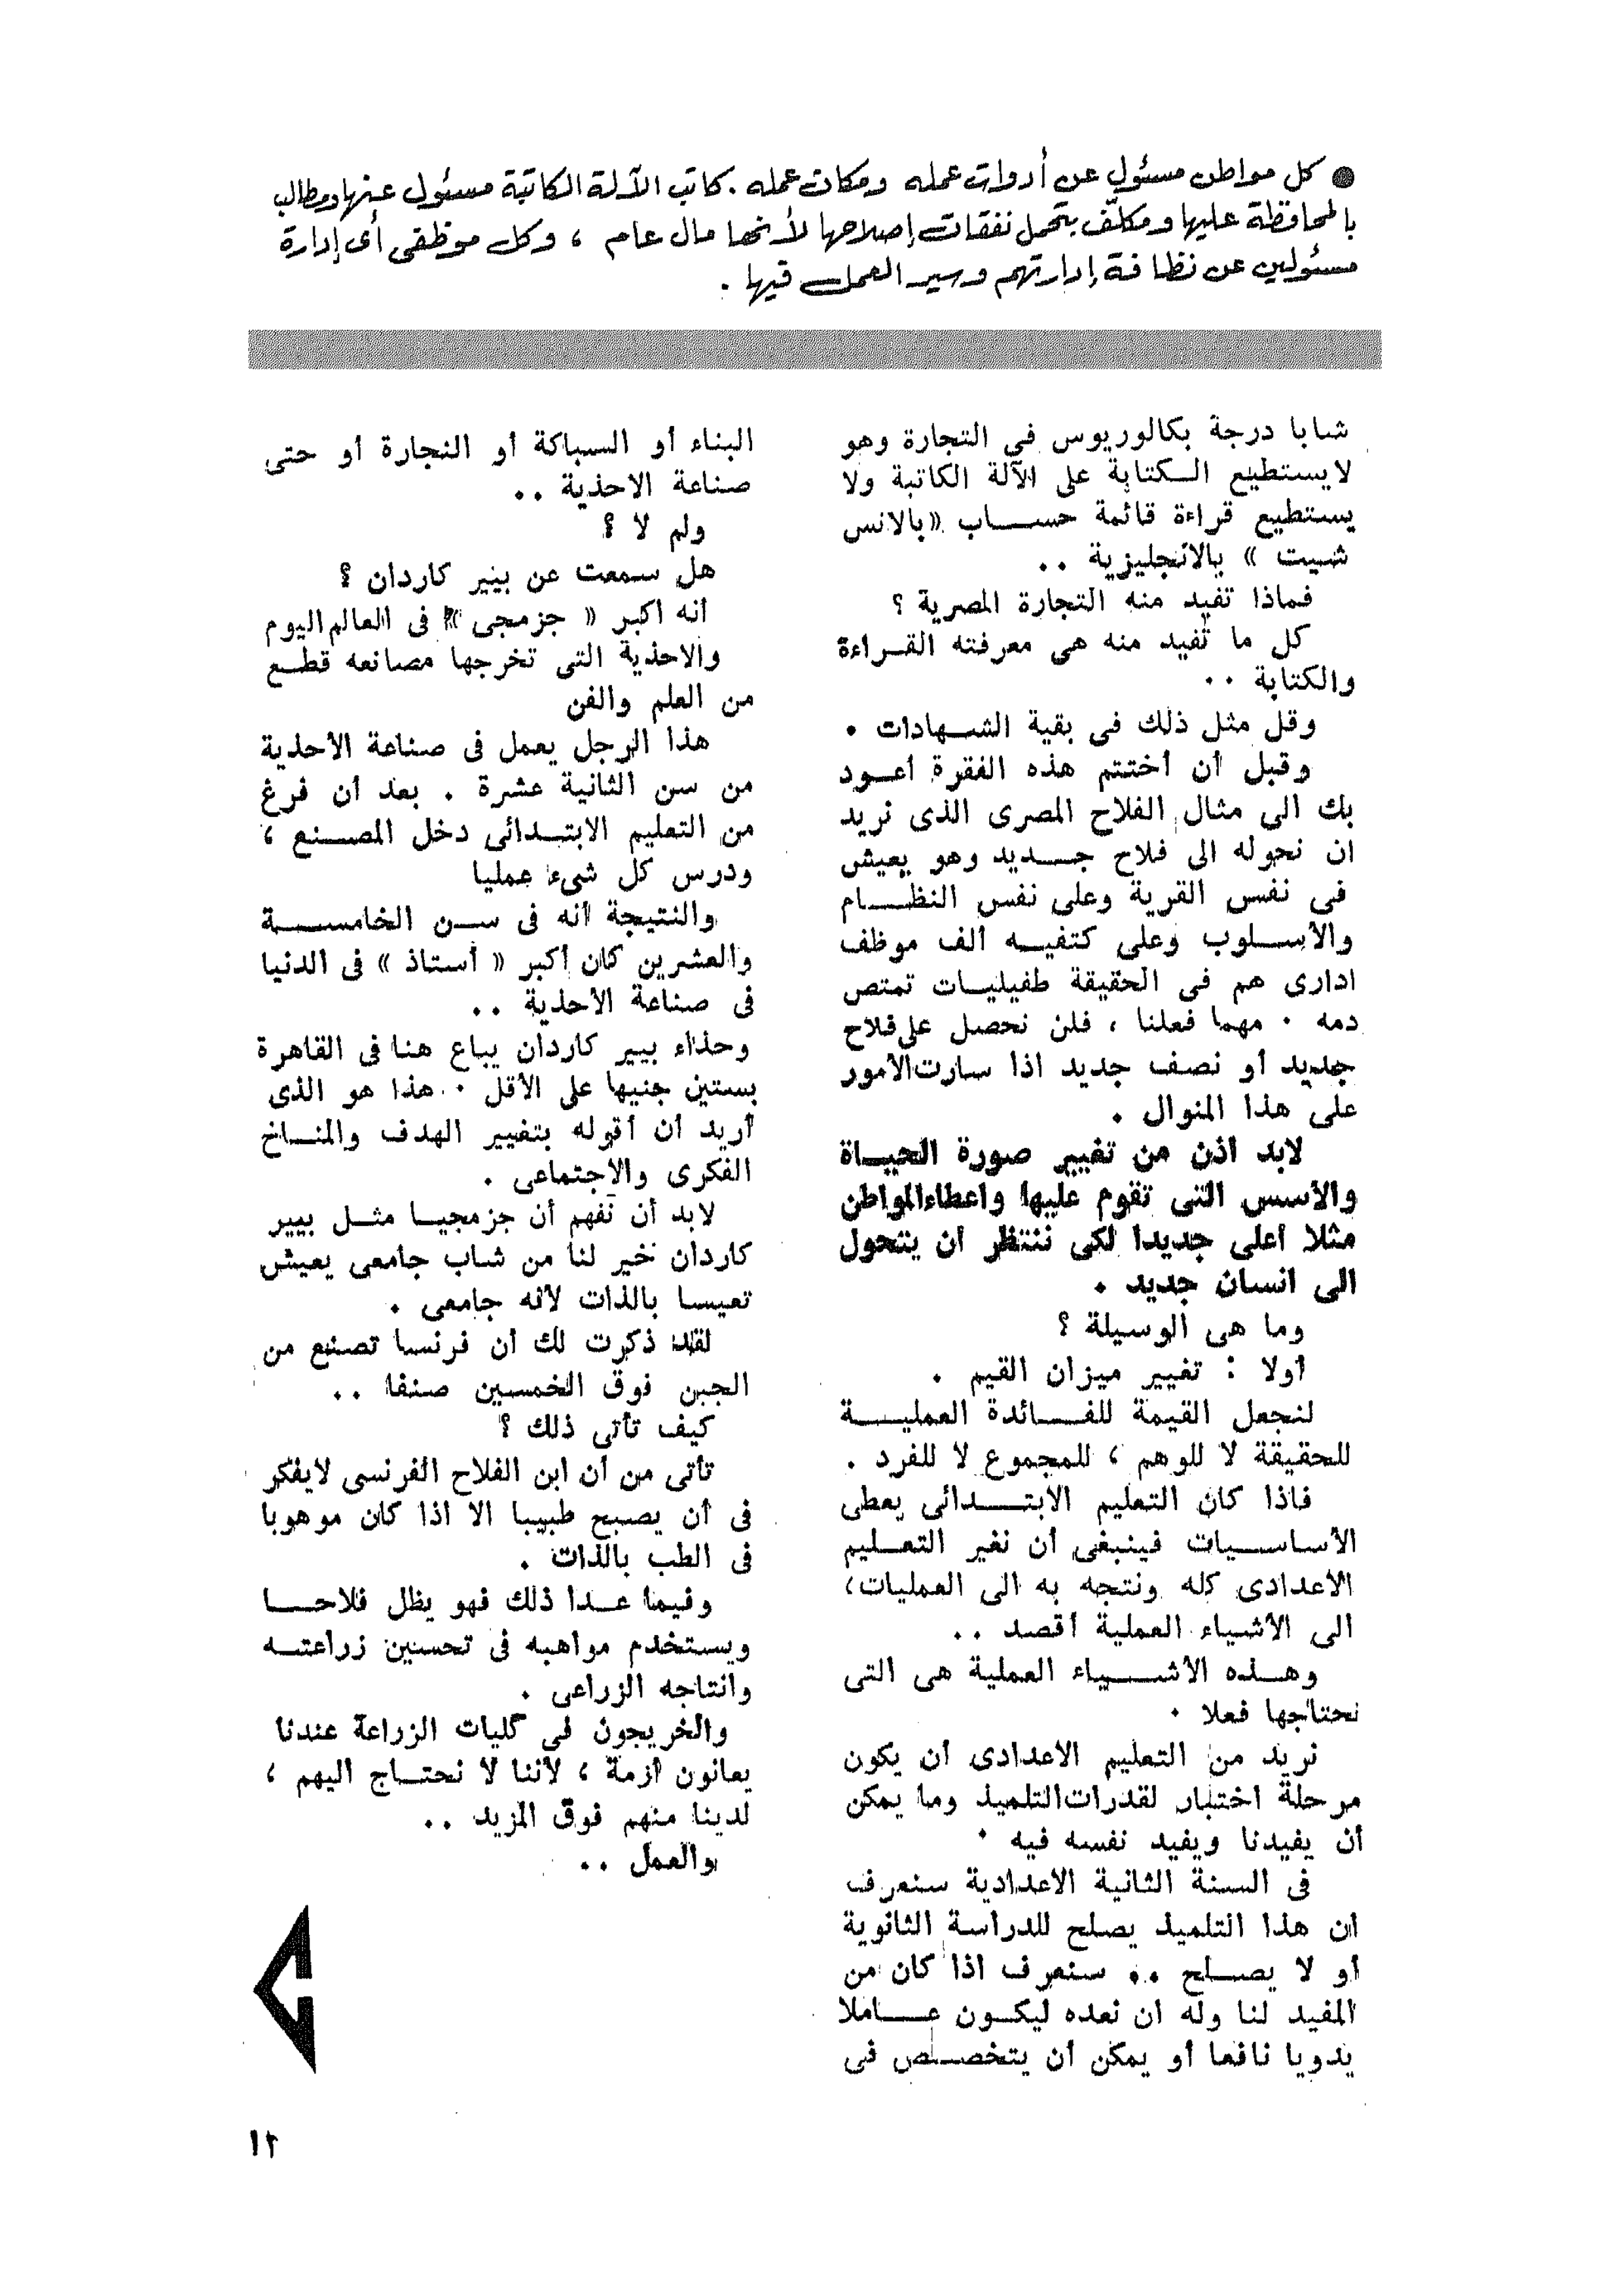 ● كل مواطن مسئول عن أدوات عمله ومكان عمله . كاتب الآلة الكاتبة مسئول عنها ومطالب
بالمحافظة عليها ومكلّف بتحمل نفقات إصلاحها لأنها مال عام ، وكل موظفى أى إدارة
مسئولين عن نظافة إدارتهم وسير العمل فيها .
شابا درجة بكالوريوس فى التجارة وهو
لايستطيع الكتابة على الآلة الكاتبة ولا
يستطيع قراءة قائمة حساب « بالانس
شيت » بالانجليزية ..
فماذا تفيد منه التجارة المصرية ؟
كل ما تفيد منه هى معرفته القراءة
والكتابة ..
وقل مثل ذلك فى بقية الشهادات .
وقبل أن أختتم هذه الفقرة أعود
بك الى مثال الفلاح المصرى الذى نريد
ان نحوله الى فلاح جديد وهو يعيش
فى نفس القرية وعلى نفس النظام
والأسلوب وعلى كتفيه ألف موظف
ادارى هم فى الحقيقة طفيليات تمتص
دمه . مهما فعلنا ، فلن نحصل على فلاح
جديد أو نصف جديد اذا سارت الامور
على هذا المنوال .
لابد اذن من تغيير صورة الحياة
والأسس التى تقوم عليها واعطاء المواطن
مثلا أعلى جديدا لكى ننتظر ان يتحول
الى انسان جديد .
وما هى الوسيلة ؟
أولا : تغيير ميزان القيم .
لنجعل القيمة للفائدة العملية
للحقيقة لا للوهم ، للمجموع لا للفرد .
فاذا كان التعليم الابتدائى يعطى
الأساسيات فينبغى أن نغير التعليم
الاعدادى كله ونتجه به الى العمليات ،
الى الأشياء العملية أقصد ..
وهذه الأشياء العملية هى التى
نحتاجها فعلا .
نريد من التعليم الاعدادى أن يكون
مرحلة اختبار لقدرات التلميذ وما يمكن
أن يفيدنا ويفيد نفسه فيه .
فى السنة الثانية الاعدادية سنعرف
ان هذا التلميذ يصلح للدراسة الثانوية
أو لا يصلح .. سنعرف اذا كان من
المفيد لنا وله ان نعده ليكون عاملا
يدويا نافعا أو يمكن أن يتخصص فى
البناء أو السباكة أو النجارة أو حتى
صناعة الاحذية ..
ولم لا ؟
هل سمعت عن بيير كاردان ؟
انه اكبر « جزمجى » فى العالم اليوم
والاحذية التى تخرجها مصانعه قطع
من العلم والفن
هذا الرجل يعمل فى صناعة الأحذية
من سن الثانية عشرة . بعد أن فرغ
من التعليم الابتدائى دخل المصنع ،
ودرس كل شىء عمليا
والنتيجة أنه فى سن الخامسة
والعشرين كان أكبر « أستاذ » فى الدنيا
فى صناعة الأحذية ..
وحذاء بيير كاردان يباع هنا فى القاهرة
بستين جنيها على الأقل . هذا هو الذى
أريد أن أقوله بتغيير الهدف والمناخ
الفكرى والاجتماعى .
لابد أن نفهم أن جزمجيا مثل بيير
كاردان خير لنا من شاب جامعى يعيش
تعيسا بالذات لأنه جامعى .
لقد ذكرت لك أن فرنسا تصنع من
الجبن فوق الخمسين صنفا ..
كيف تأتى ذلك ؟
تأتى من أن ابن الفلاح الفرنسى لايفكر
فى أن يصبح طبيبا الا اذا كان موهوبا
فى الطب بالذات .
وفيما عدا ذلك فهو يظل فلاحا
ويستخدم مواهبه فى تحسين زراعته
وانتاجه الزراعى .
والخريجون فى كليات الزراعة عندنا
يعانون أزمة ، لأننا لا نحتاج اليهم ،
لدينا منهم فوق المزيد ..
والعمل ..
١٢